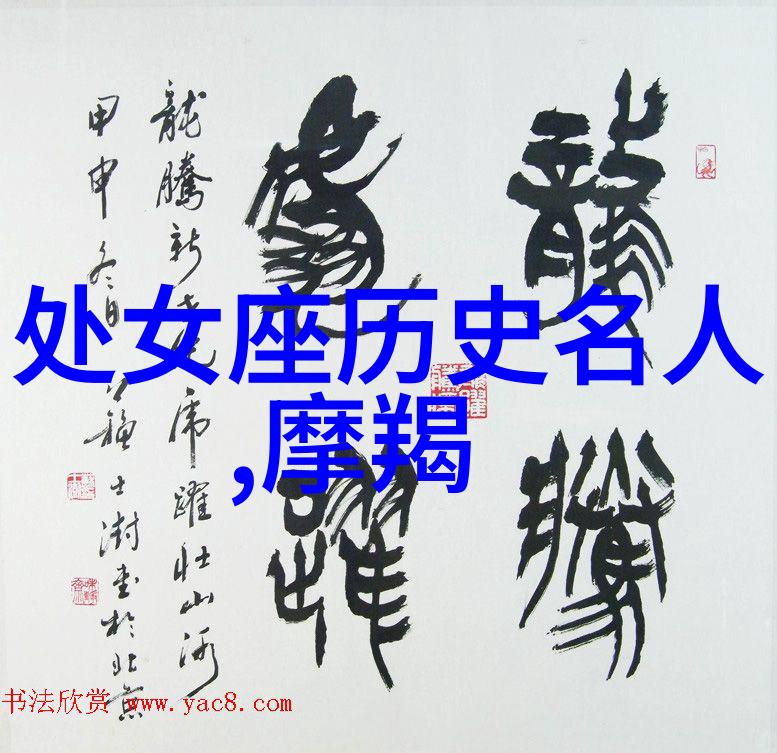 龍騰
虎躍
龍騰新世紀虎躍壯山河
甲申冬日蘇士澍书於北京
处女座历史名人
,摩羯
书法欣赏 www.yac8.com